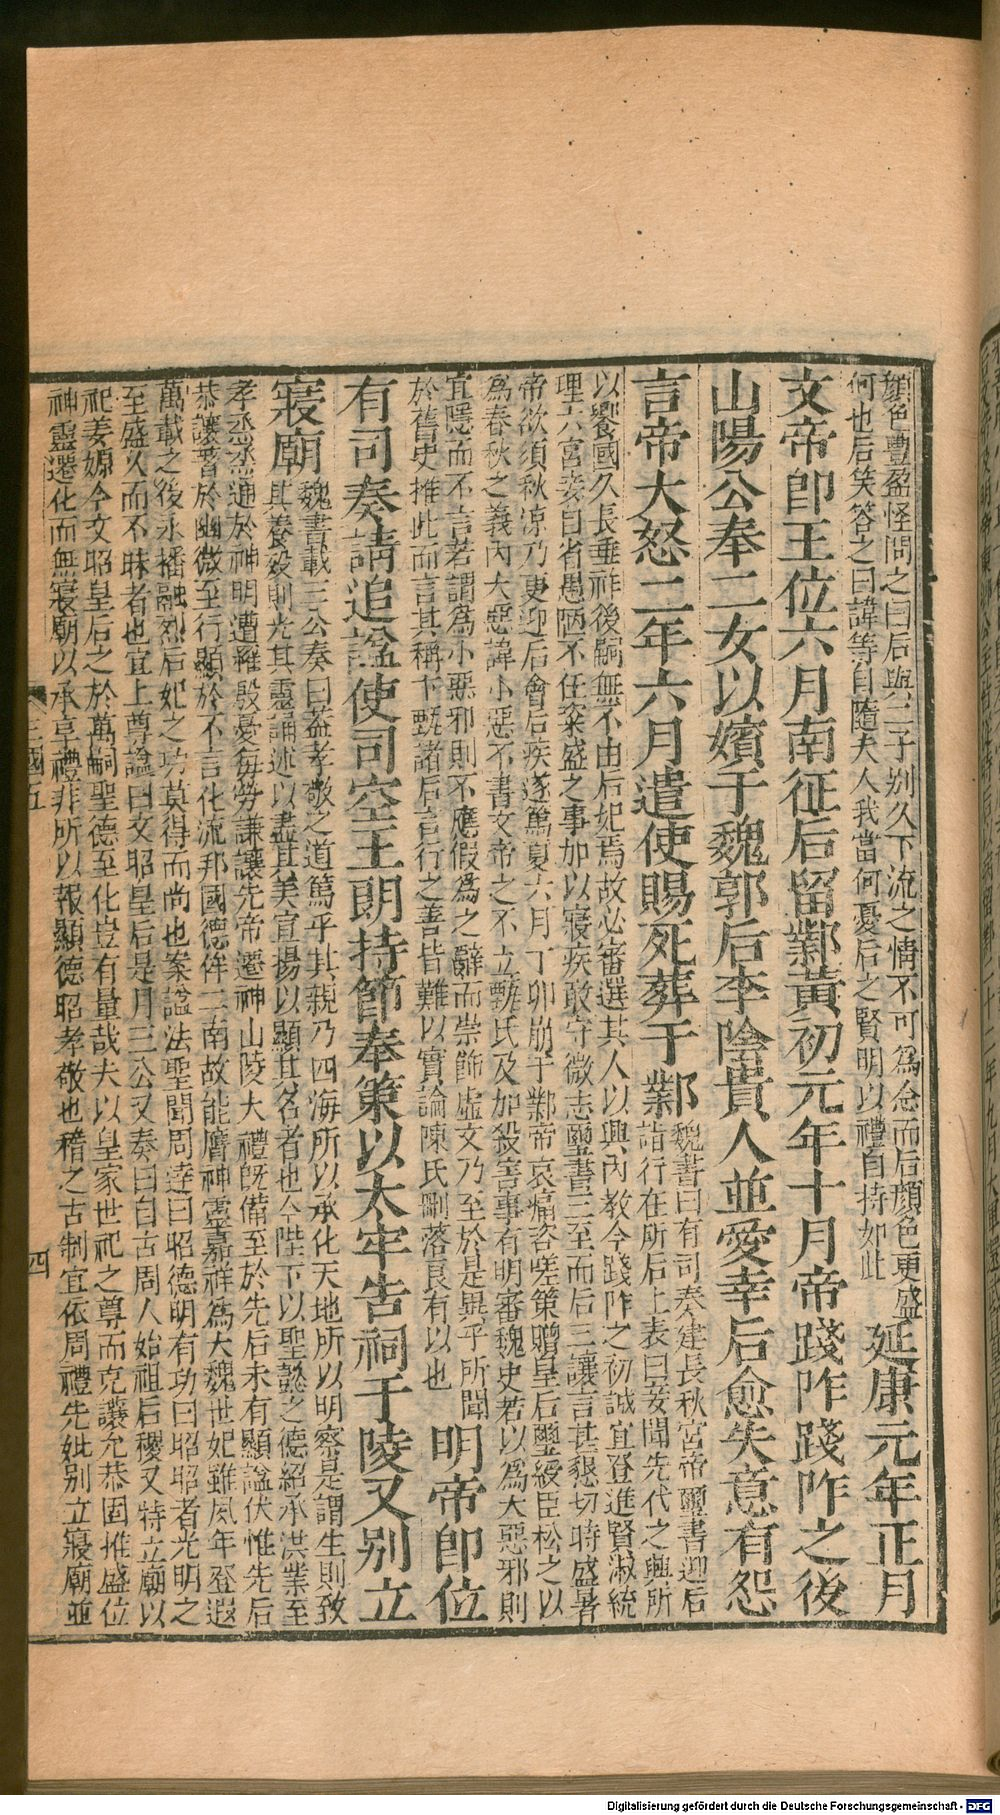 顏色豐盈怪問之曰后與二子别久下流之情不可爲念而后顏色更盛
何也后笑答之曰諱等自隨夫人我當何憂后之賢明以禮自持如此
延康元年正月
文帝卽王位六月南征后留鄴黃初元年十月帝踐阼踐阼之後
山陽公奉二女以嬪于魏郭后李陰貴人並愛幸后愈失意有怨
言帝大怒二年六月遣使賜死葬于鄴
魏書曰有司奏建長秋宮帝璽書迎后
詣行在所后上表曰妾聞先代之興所
以饗國久長垂祚後嗣無不由后妃焉故必審選其人以興內教今踐阼之初誠宜登進賢淑統
理六宮妾自省愚陋不任粢盛之事加以寢疾敢守微志璽書三至而后三讓言甚懇切時盛暑
帝欲須秋凉乃更迎后會后疾遂篤夏六月丁卯崩于鄴帝哀痛咨嗟策贈皇后璽綬臣松之以
爲春秋之義內大惡諱小惡不書文帝之不立甄氏及加殺害事有明審魏史若以爲大惡邪則
宜隱而不言若謂爲小惡邪則不應假爲之辭而崇飾虛文乃至於是異乎所聞
於舊史推此而言其稱卞甄諸后言行之善皆難以實論陳氏刪落良有以也
明帝卽位
有司奏請追謚使司空王朗持節奉策以太牢告祠于陵又别立
寢廟
魏書載三公奏曰蓋孝敬之道篤乎其親乃四海所以承化天地所以明察是謂生則致
其養歿則光其靈誦述以盡其美宣揚以顯其名者也今陛下以聖懿之德紹承洪業至
孝烝烝通於神明遭罹殷憂每勞謙讓先帝遷神山陵大禮旣備至於先后未有顯謚伏惟先后
恭讓著於幽微至行顯於不言化流邦國德侔二南故能膺神靈嘉祥爲大魏世妃雖夙年登遐
萬載之後永播融烈后妃之功莫得而尚也案謚法聖聞周達曰昭德明有功曰昭昭者光明之
至盛久而不昧者也宜上尊謚曰文昭皇后是月三公又奏曰自古周人始祖后稷又特立廟以
祀姜嫄今文昭皇后之於萬嗣聖德至化豈有量哉夫以皇家世祀之尊而克讓允恭固推盛位
神靈遷化而無寢廟以承享禮非所以報顯德昭孝敬也稽之古制宜依周禮先妣别立寢廟並
三國五
四
Digitalisierung gefördert durch die Deutsche Forschungsgemeinschaft - DFG